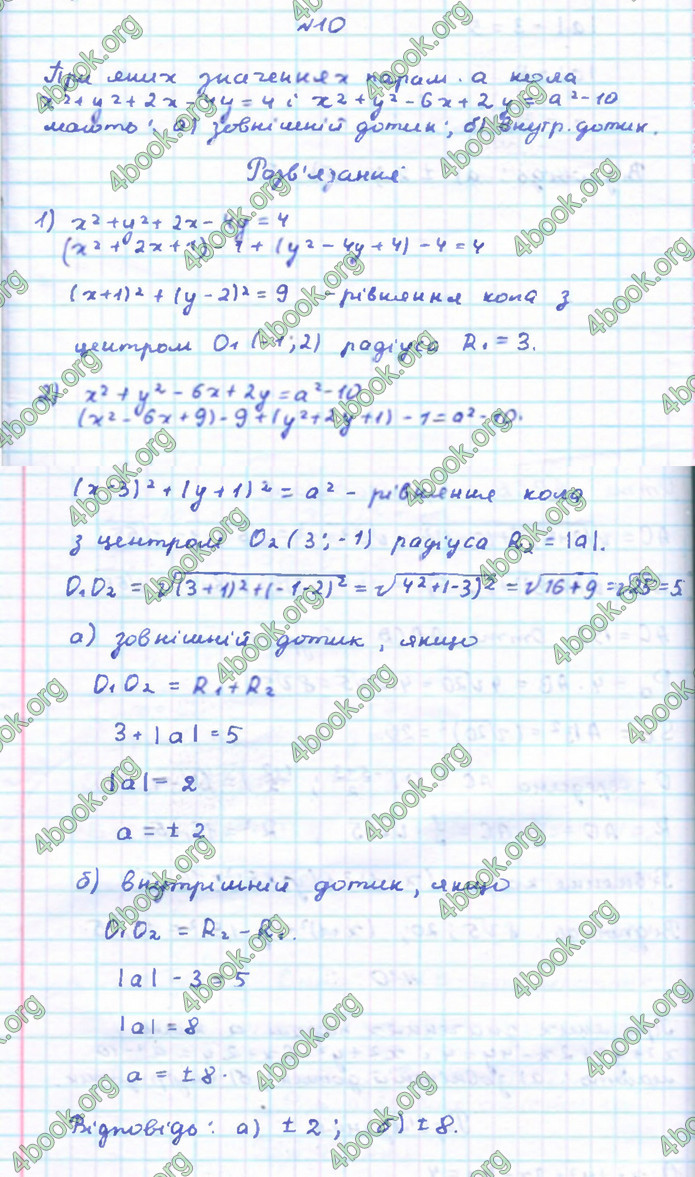 №10
При яких значеннях парам. а кола
x²+y²+2x-4y=4 і x²+y²-6x+2y=a²-10
мають: а) зовнішній дотик; б) внутр. дотик.
Розв'язання
1) x²+y²+2x-4y=4
(x²+2x+1)-1+(y²-4y+4)-4=4
(x+1)²+(y-2)²=9 - рівняння кола з
центром O₁(-1;2) радіуса R₁=3.
2) x²+y²-6x+2y=a²-10
(x²-6x+9)-9+(y²+2y+1)-1=a²-10.
(x-3)²+(y+1)²=a² - рівняння кола
з центром O₂(3;-1) радіуса R₂=|a|.
O₁O₂=√(3+1)²+(-1-2)²=√4²+(-3)²=√16+9=√25=5.
а) зовнішній дотик, якщо
O₁O₂=R₁+R₂
3+|a|=5
|a|=2
a=±2
б) внутрішній дотик, якщо
O₁O₂=R₂-R₁.
|a|-3=5
|a|=8
a=±8.
Відповідь: а) ±2; б) ±8.
4book.org